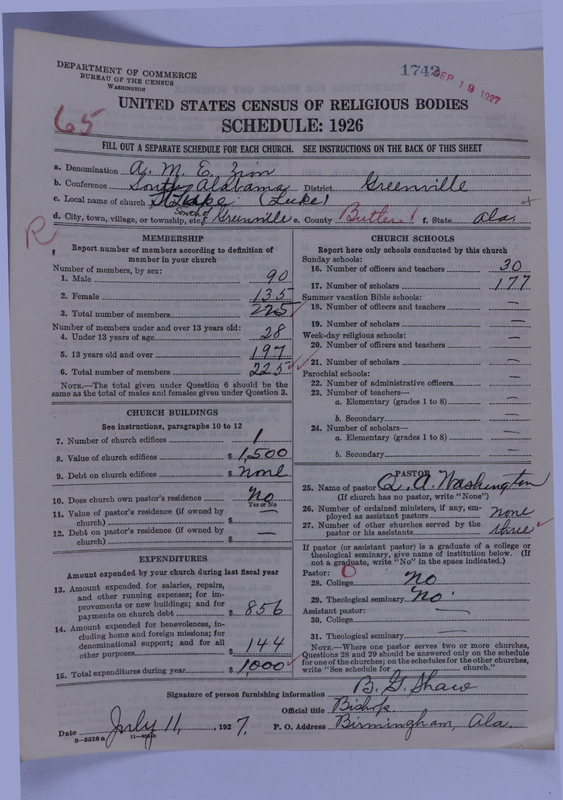 DEPARTMENT OF COMMERCE
BUREAU OF THE CENSUS
WASHINGTON
1742
SEP 19 1927
UNITED STATES CENSUS OF RELIGIOUS BODIES
65
SCHEDULE: 1926
FILL OUT A SEPARATE SCHEDULE FOR EACH CHURCH. SEE INSTRUCTIONS ON THE BACK OF THIS SHEET
a. Denomination A. M. E. Zion
b. Conference South Alabama District Greenville
c. Local name of church (Luke)
d. City, town, village, or township, etc. South of Greenville e. County Butler f. State Ala.
R
MEMBERSHIP
Report number of members according to definition of
member in your church
Number of members, by sex:
1. Male 90
2. Female 135
3. Total number of members 225
Number of members under and over 13 years old:
4. Under 13 years of age 28
5. 13 years old and over 197
6. Total number of members 225
NOTE.—The total given under Question 6 should be the
same as the total of males and females given under Question 3.
CHURCH BUILDINGS
See instructions, paragraphs 10 to 12
7. Number of church edifices 1
8. Value of church edifices $ 1,500
9. Debt on church edifices $ none
10. Does church own pastor's residence No
Yes or No
11. Value of pastor's residence (if owned by
church) $ —
12. Debt on pastor's residence (if owned by
church) $ —
EXPENDITURES
Amount expended by your church during last fiscal year
13. Amount expended for salaries, repairs,
and other running expenses; for im-
provements or new buildings; and for
payments on church debt $ 856
14. Amount expended for benevolences, in-
cluding home and foreign missions; for
denominational support; and for all
other purposes $ 144
15. Total expenditures during year $ 1,000
CHURCH SCHOOLS
Report here only schools conducted by this church
Sunday schools:
16. Number of officers and teachers 30
17. Number of scholars 177
Summer vacation Bible schools:
18. Number of officers and teachers —
19. Number of scholars —
Week-day religious schools:
20. Number of officers and teachers —
21. Number of scholars —
Parochial schools:
22. Number of administrative officers —
23. Number of teachers—
a. Elementary (grades 1 to 8) —
b. Secondary —
24. Number of scholars—
a. Elementary (grades 1 to 8) —
b. Secondary —
PASTOR
25. Name of pastor Q. A. Washington
(If church has no pastor, write "None")
26. Number of ordained ministers, if any, em-
ployed as assistant pastors none
27. Number of other churches served by the
pastor or his assistants three
If pastor (or assistant pastor) is a graduate of a college or
theological seminary, give name of institution below. (If
not a graduate, write "No" in the space indicated.)
Pastor: O
28. College No
29. Theological seminary No
Assistant pastor:
30. College —
31. Theological seminary —
NOTE.—Where one pastor serves two or more churches,
Questions 28 and 29 should be answered only on the schedule
for one of the churches; on the schedules for the other churches,
write "See schedule for church."
Signature of person furnishing information B. G. Shaw
Official title Bishop
Date July 11, 1927. P. O. Address Birmingham, Ala.